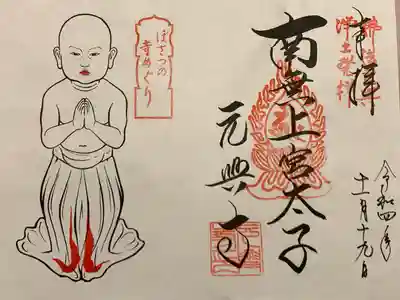 浄土発祥
奉拝
令和四年
十一月十九日
南無上宮太子
元興寺
ぼさつの
寺めぐり